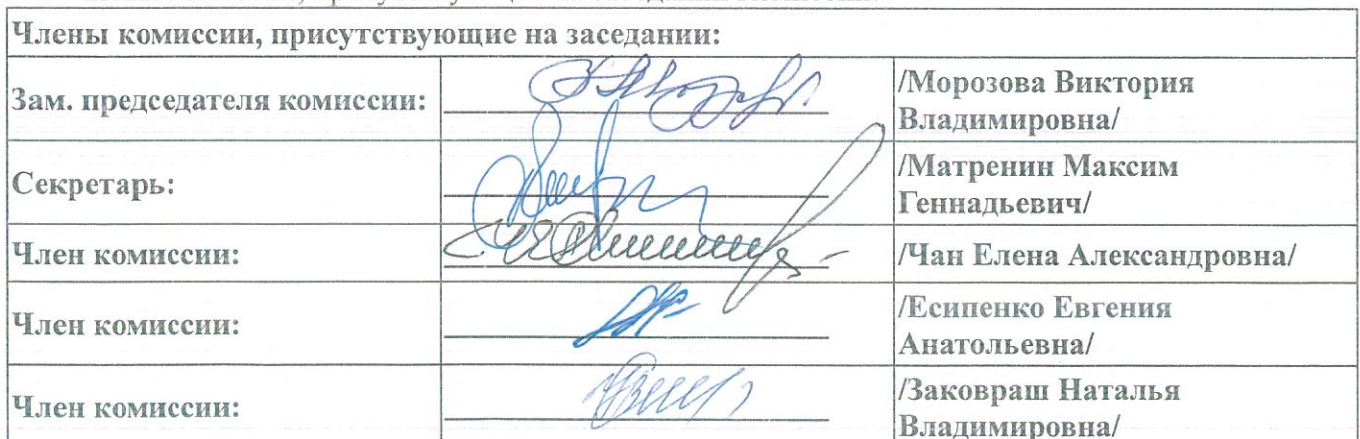 Члены комиссии, присутствующие на заседании:
Зам. председателя комиссии:
/Морозова Виктория
Владимировна/
Секретарь:
/Матренин Максим
Геннадьевич/
Член комиссии:
/Чан Елена Александровна/
Член комиссии:
/Есипенко Евгения
Анатольевна/
Член комиссии:
/Заковраш Наталья
Владимировна/